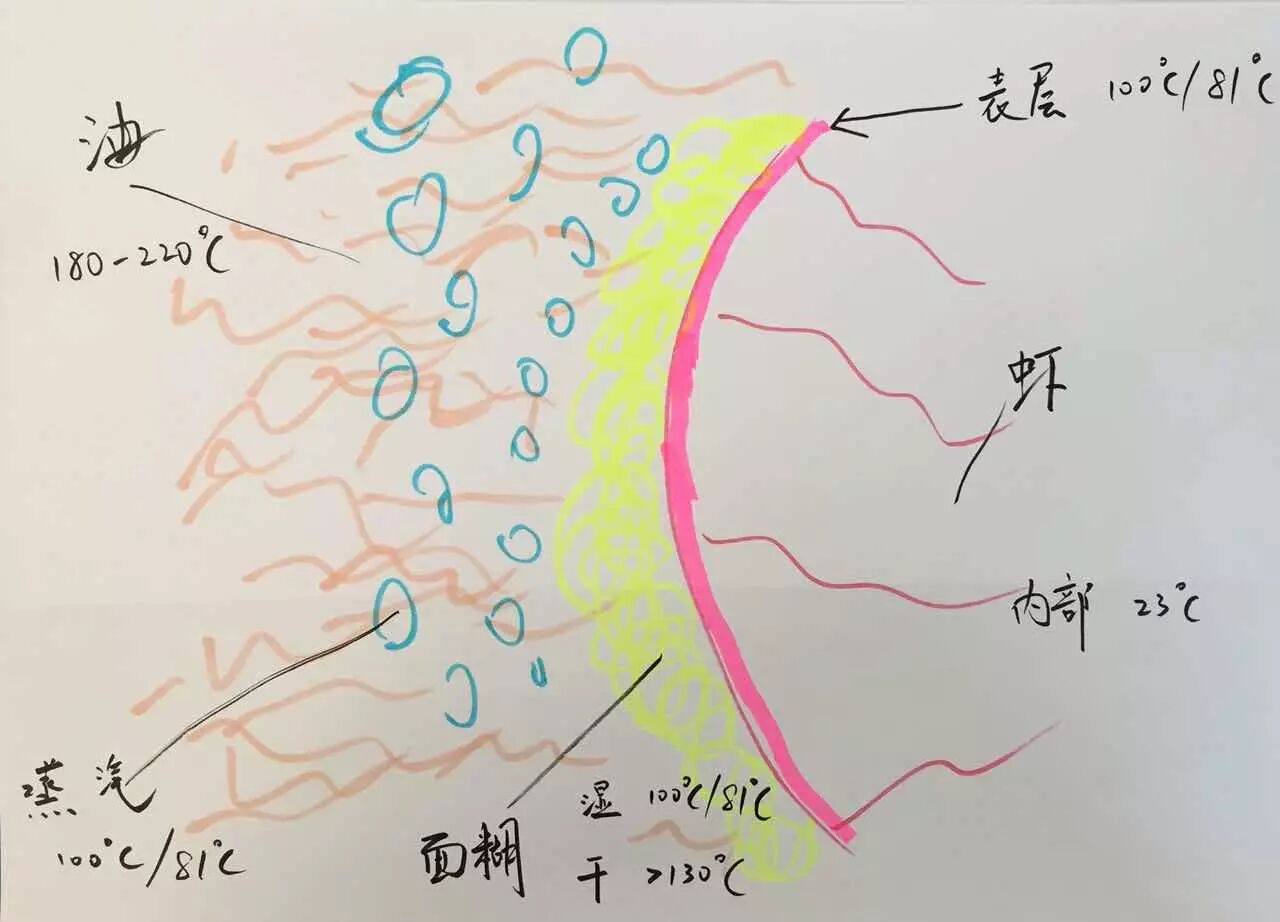 油
180-220℃
表层 100℃/81℃
虾
内部 23℃
蒸汽
100℃/81℃
面糊
湿 100℃/81℃
干 >130℃